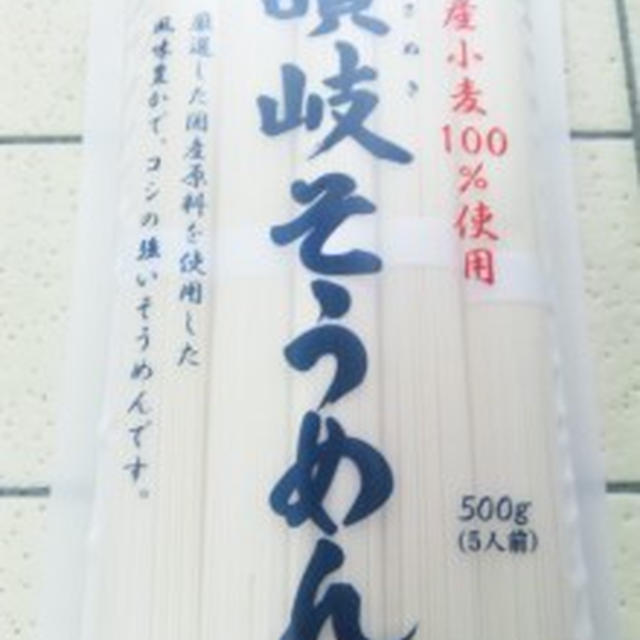 産小麦100%使用
さぬき
讃岐そうめん
厳選した国産原料を使用した
風味豊かで、コシの強いそうめんです。
500g
(5人前)